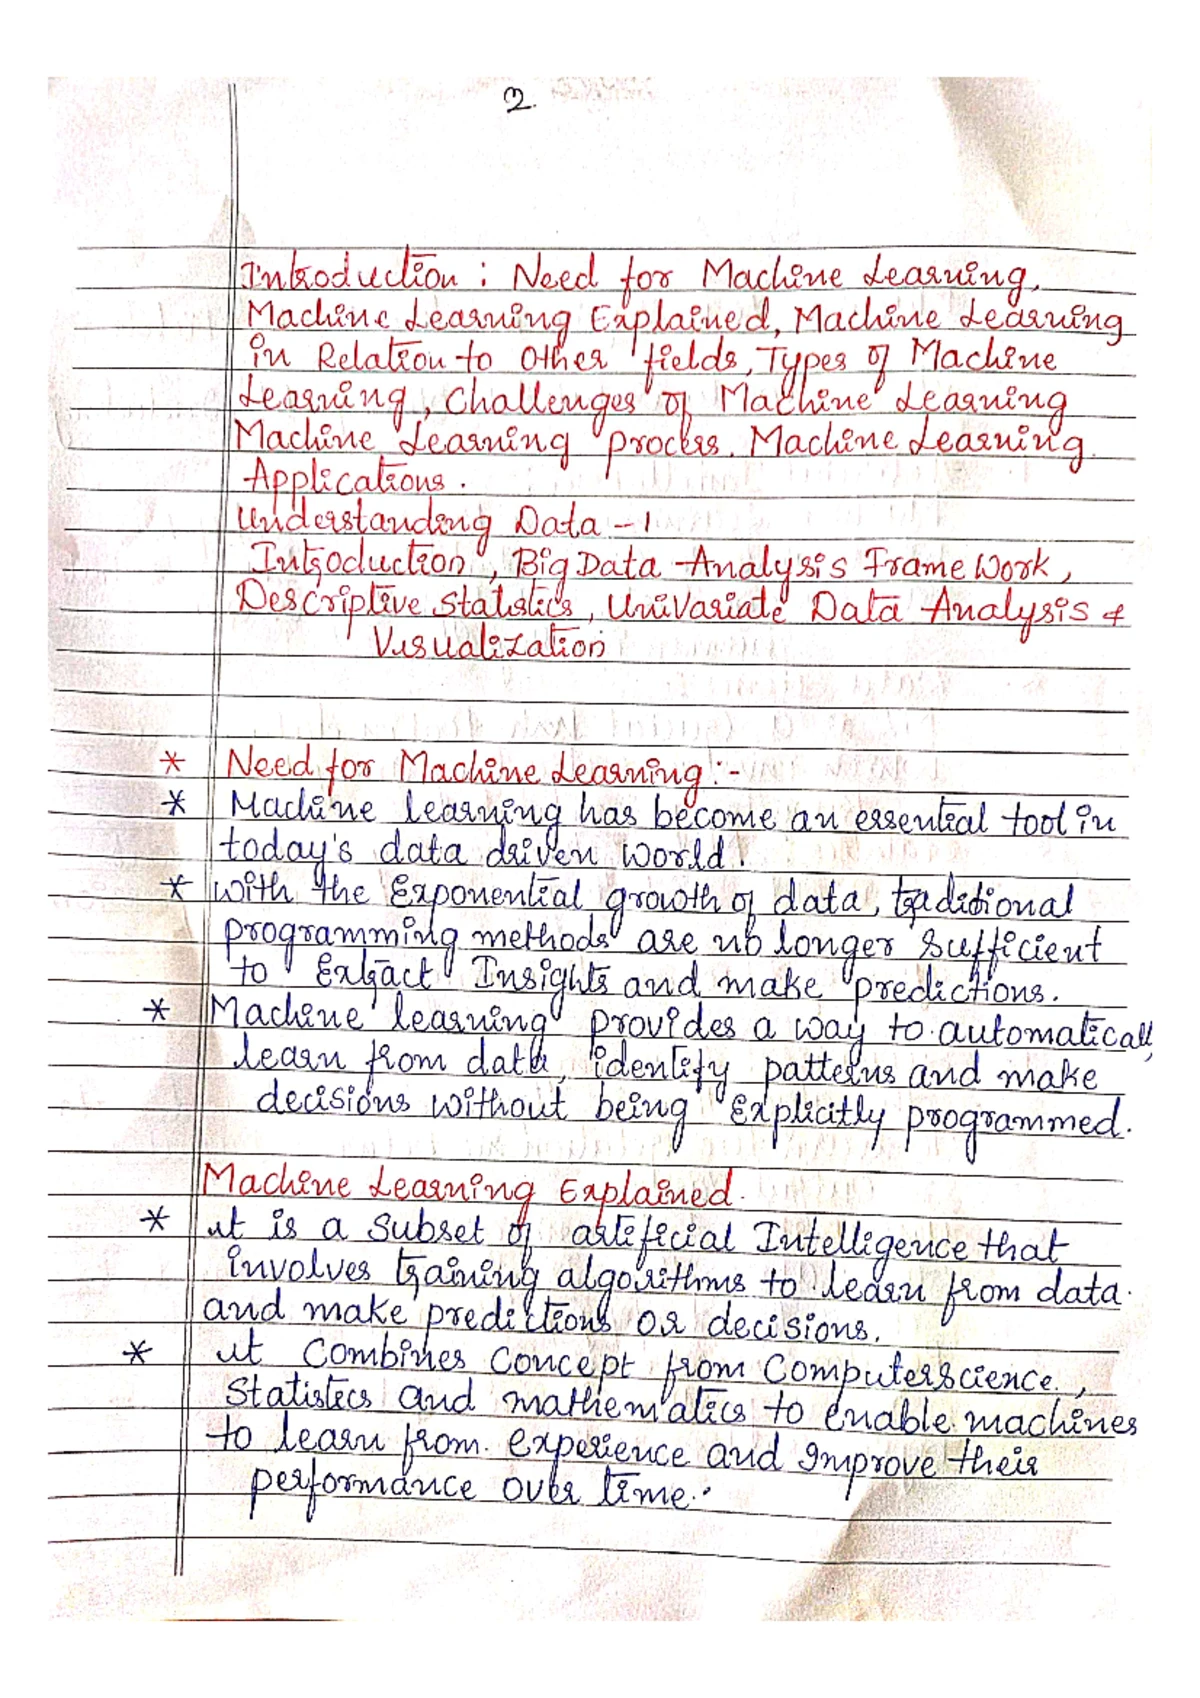 2.
Introduction : Need for Machine Learning,
Machine Learning Explained, Machine Learning
in Relation to Other fields, Types of Machine
Learning, Challenges of Machine Learning
Machine Learning process. Machine Learning
Applications.
Understanding Data -1
Introduction, Big Data Analysis Frame Work,
Descriptive Statistics, Univariate Data Analysis &
Visualization
* Need for Machine Learning :-
* Machine learning has become an essential tool in
today's data driven world.
* with the Exponential growth of data, traditional
programming methods are no longer sufficient
to Extract Insights and make predictions.
* Machine learning provides a way to automatically
learn from data, identify patterns and make
decisions without being Explicitly programmed.
Machine Learning Explained.
* it is a Subset of artificial Intelligence that
involves training algorithms to learn from data.
and make predictions or decisions.
* it Combines Concept from Computerscience,
Statistics and mathematics to enable machines
to learn from experience and Improve their
performance over time.